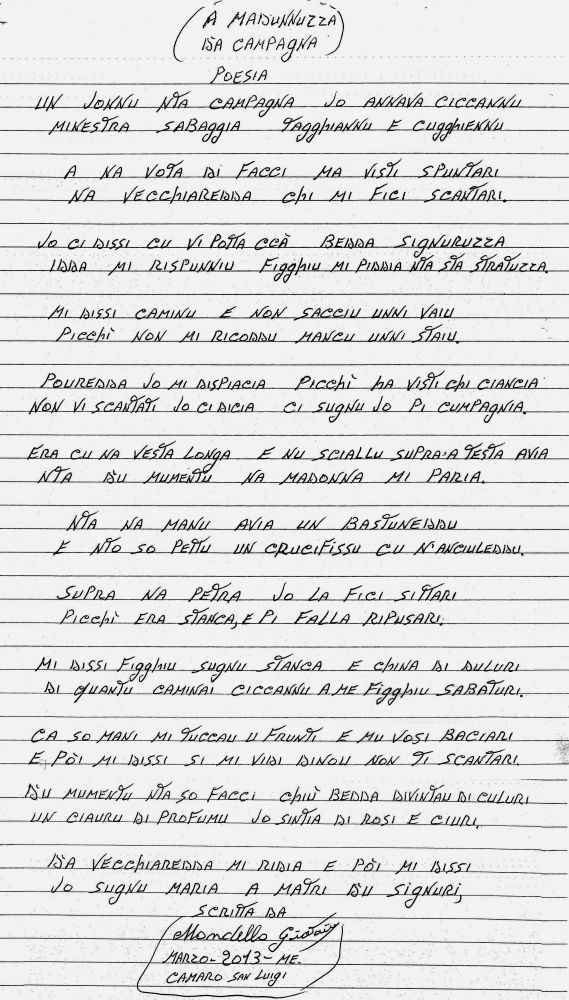 A MADUNNUZZA
DDA CAMPAGNA
POESIA
UN JONNU NTA CAMPAGNA JO ANNAVA CICCANNU
MINESTRA SABAGGIA TAGGHIANNU E CUGGHIENNU
A NA VOTA DI FACCI MA VISTI SPUNTARI
NA VECCHIAREDDA CHI MI FICI SCANTARI.
JO CI DISSI CU VI POTTA CCÀ BEDDA SIGNURUZZA
IDDA MI RISPUNNIU FIGGHIU MI PIDDIA NTA STA STRATUZZA.
MI DISSI CAMINU E NON SACCIU UNNI VAIU
PICCHÌ NON MI RICODDU MANCU UNNI STAIU.
POUREDDA JO MI DISPIACIA PICCHÌ HA VISTI CHI CIANCIA
NON VI SCANTATI JO CI DICIA CI SUGNU JO PI CUMPAGNIA.
ERA CU NA VESTA LONGA E NU SCIALLU SUPRA'A TESTA AVIA
NTA DDU MUMENTU NA MADONNA MI PARIA.
NTA NA MANU AVIA UN BASTUNEDDU
E NTO SO PETTU UN CRUCIFISSU CU N'ANCIULEDDU.
SUPRA NA PETRA JO LA FICI SITTARI
PICCHÌ ERA STANCA, E PI FALLA RIPUSARI.
MI DISSI FIGGHIU SUGNU STANCA E CHINA DI DULURI
DI QUANTU CAMINAI CICCANNU A ME FIGGHIU SABATURI.
CA SO MANI MI TUCCAU U FRUNTI E MU VOSI BACIARI
E PÒI MI DISSI SI MI VIDI DINOU NON TI SCANTARI.
DDU MUMENTU NTA SO FACCI CHIÙ BEDDA DIVINTAU DI CULURI
UN CIAURU DI PROFUMU JO SINTIA DI ROSI E CIURI.
DDA VECCHIAREDDA MI RIDIA E PÒI MI DISSI
JO SUGNU MARIA A MATRI DU SIGNURI,
SCRITTA DA
Mondello
MARZO-2013-ME.
CAMARO SAN LUIGI